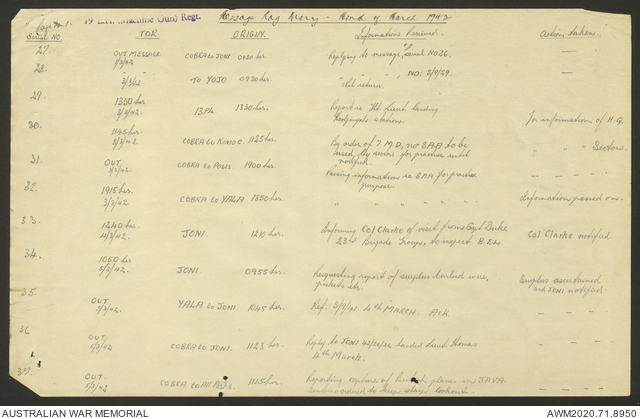 Page No 1.
19 L.H. (Machine Gun) Regt.
Message Log Diary - Month of March 1942
Serial No. T.O.R. ORIGIN. Information Received. Action taken.
27. OUT MESSAGE COBRA to JONI 0920 hrs. Replying to message, Serial No 26. —
1/3/42
28. " " TO YOJO 0930 hrs. " " " NO: 3/9/29. —
3/3/42 "Nil" return.
29. 1350 hrs. 13 Pl. 1330 hrs. Report re Flt Lieut landing For information of H.Q.
3/3/42. stations.
30. 1145 hrs. COBRA to KIMO C. 1125 hrs. By order of 7 M.D, no SAA to be " " " Sectors.
3/3/42. used, by units for practice until
notified.
31. OUT. COBRA to POSTS 1900 hrs. Passing information re SAA for practice —
3/3/42. purpose.
32. 1915 hrs. COBRA to YALA 1850 hrs. " " " " " Information passed on.
3/3/42
33. 1240 hrs. JONI. 1210 hrs. Informing Col Clarke of visit from Capt Duke Col Clarke notified.
4/3/42. 23rd Brigade Group, to inspect
34. 1050 hrs JONI. 0955 hrs. Requesting report of surplus barbed wire, Surplus ascertained
5/3/42. pickets etc. and JONI notified.
35. OUT. YALA to JONI 1045 hrs. Ref. 3/9/41. 4th MARCH. Ack. — " —
5/3/42.
36 OUT. COBRA to JONI. 1123 hr. Reply to JONI handed Lieut Thomas — " —
5/3/42 4th March.
37. OUT. COBRA to All Posts. 1115 hrs. Reporting capture of planes in JAVA. — " —
5/3/42 ordered to keep sharp lookout.
AUSTRALIAN WAR MEMORIAL
AWM2020.71.8950